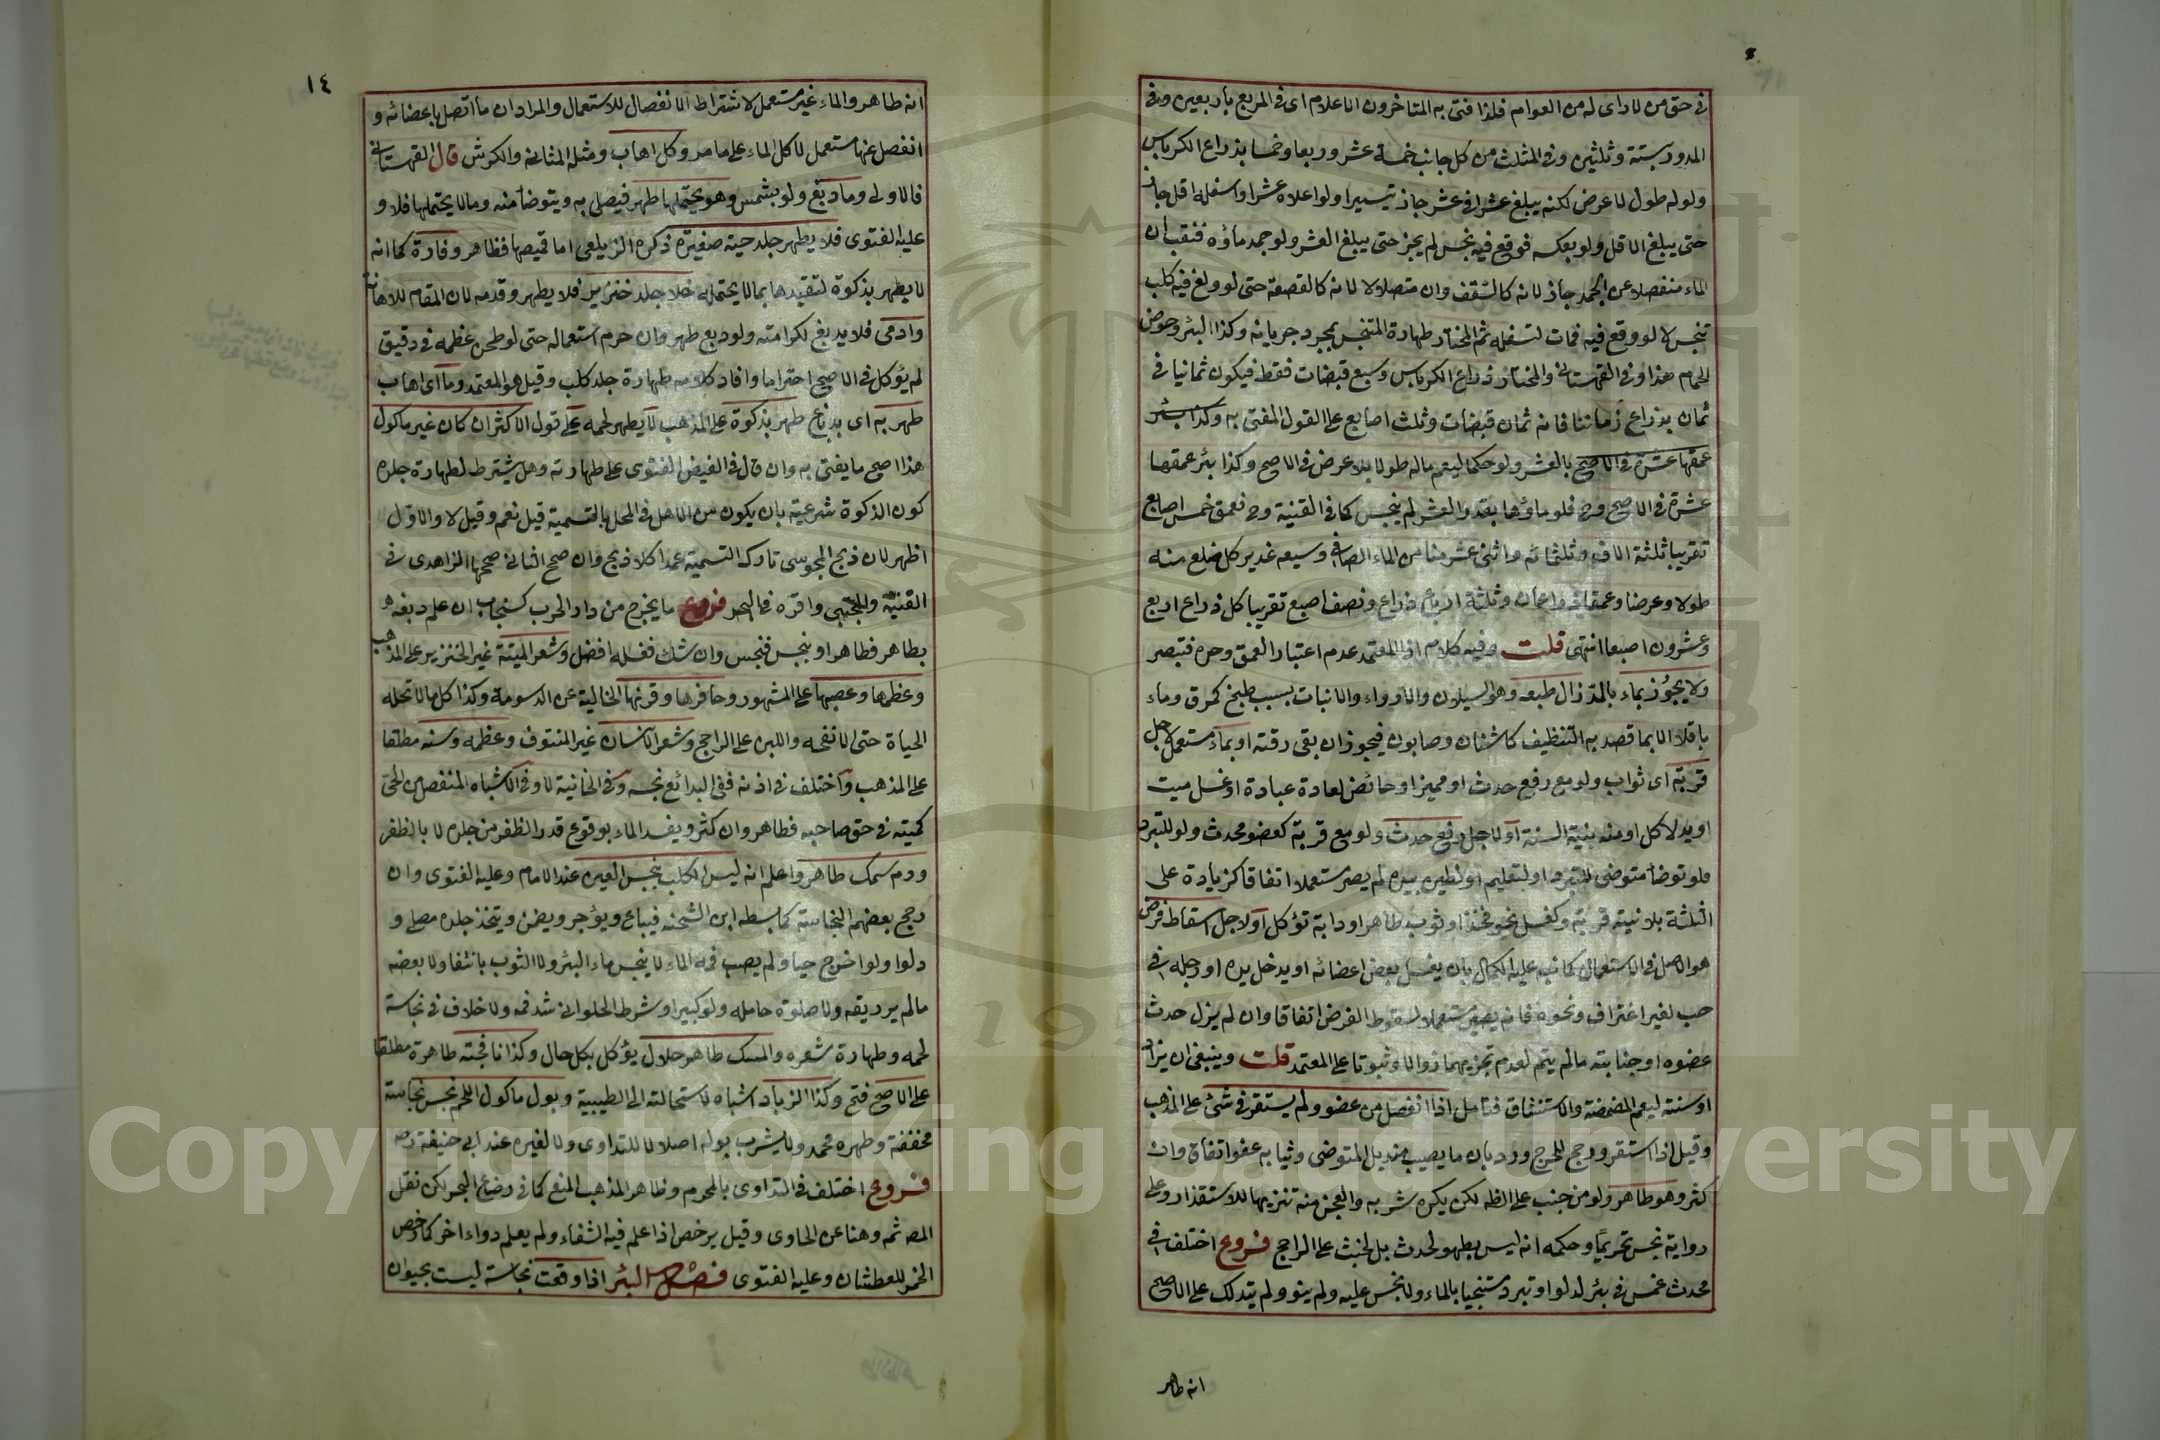 في حق من لا راى له من العوام فلذا افتى به المتاخرون الاعلام اى في المربع باربعين وفي
المدور بستة وثلثين وفي المثلث من كل جانب خمسة عشر وربعا وخمسا بذراع الكرباس
ولو له طول لا عرض لكنه يبلغ عشرا في عشر جاز تيسيرا ولو اعلاه عشرا واسفله اقل جاز
حتى يبلغ الاقل ولو بعكسه فوقع فيه نجس لم يجز حتى يبلغ العشر ولو جمد ماؤه فنقب ان
الماء منفصلا عن الجمد جاز لانه كالسقف وان متصلا لا لانه كالقصعة حتى لو ولغ فيه كلب
تنجس لا لو وقع فيه فمات لتسفله ثم المختار طهارة المتنجس بمجرد جريانه وكذا البئر وحوض
الحمام هذا وفي القهستانى والمختار ذراع الكرباس وسبع قبضات فقط فيكون ثمانيا في
ثمان بذراع زماننا فانه ثمان قبضات وثلث اصابع على القول المفتى به وكذا بئر
عمقها عشرة في الاصح بالعشر ولو حكما ليعم ماله طول بلا عرض في الاصح وكذا بئر عمقها
عشرة في الاصح وح فلو ماؤها بقدر العشر لم ينجس كما في القنية وح فعمق خمس اصابع
تقريبا ثلثة الاف وثلثمائة واثنى عشر منا من الماء الصافى وسيعه غدير كل ضلع منه
طولا وعرضا وعمقا ذراعان وثلثة ارباع ذراع ونصف اصبع تقريبا كل ذراع اربع
وعشرون اصبعا انتهى قلت وفيه كلام اذ المعتمد عدم اعتبار العمق وحده فتبصر
ولا يجوز بماء بالمد زال طبعه وهو السيلان والارواء والانبات بسبب طبخ كمرق وماء
باقلا الا بما قصد به التنظيف كاشنان وصابون فيجوز ان بقى رقته او بماء مستعمل لاجل
قربة اى ثواب ولو مع رفع حدث او مميز او حائض لعادة عبادة او غسل ميت
او يد لاكل او منه بنية السنة او لاجل رفع حدث ولو مع قربة كعضو محدث ولو للتبرد
فلو توضأ متوضى للتبرد او لتعليم او لطين بيده لم يصر مستعملا اتفاقا كزيادة على
الثلثة بلا نية قربة وكغسل نحو فخذ او ثوب طاهر او دابة تؤكل او لاجل اسقاط فرض
هو الاصل في الاستعمال كما نبه عليه الكمال بان يغسل بعض اعضائه او يدخل يده او رجله في
حب لغير اغتراف ونحوه فانه يصير مستعملا لسقوط الفرض اتفاقا وان لم يزل حدث
عضوه او جنابته مالم يتم لعدم تجزيهما زوالا وثبوتا على المعتمد قلت وينبغى ان يزاد
او سنته ليعم المضمضة والاستنشاق فتامل اذا انفصل من عضو ولم يستقر في شئ على المذهب
وقيل اذا استقر ورجح للحرج ورد بان ما يصيب منديل المتوضى وثيابه عفو اتفاقا وان
كثر وهو طاهر ولو من جنب على الظه لكن يكره شربه والعجن منه تنزيها للاستقذار وعلى
رواية نجس تحريمًا وحكمه انه ليس بطهور لحدث بل لخبث على الراجح فروع اختلف في
محدث غمس في بئر لدلو او تبرد مستنجيا بالماء ولا نجس عليه ولم ينو ولم يتدلك على الاصح
انه طاهر
١٤
انه طاهر والماء غير مستعمل لاشتراط الانفصال للاستعمال والمراد ان ما اتصل باعضائه و
انفصل عنها مستعمل لا كل الماء على ما مر وكل اهاب ومثله المثانة والكرش قال القهستانى
فالاولى وما دبغ ولو بشمس وهو يحتملها طهر فيصلى به ويتوضأ منه وما لا يحتملها فلا و
عليه الفتوى فلا يطهر جلد حية صغيرة ذكره الزيلعى اما قميصها فطاهر وفارة كما انه
لا يطهر بذكوة لتقيدها بما لا يحتمله خلا جلد خنزير فلا يطهر وقدمه لان المقام للاهانة
وادمى فلا يدبغ لكرامته ولو دبغ طهر وان حرم استعماله حتى لو طحن عظمه في دقيق
لم يؤكل في الاصح احتراما وافاد كلامه طهارة جلد كلب وقيل هو المعتمد وما اى اهاب
طهر به اى بدباغ طهر بذكوة على المذهب لا يطهر لحمه على قول الاكثر ان كان غير ماكول
هذا اصح ما يفتى به وان قال في الفيض الفتوى على طهارته وهل يشترط لطهارة جلده
كون الذكوة شرعية بان يكون من الاهل في المحل بالتسمية قيل نعم وقيل لا والاول
اظهر لان ذبح المجوسى تارك التسمية عمدا كلا ذبح وان صحح الثانى صححها الزاهدى في
القنية والمجتبى واقره في البحر فروع ما يخرج من دار الحرب كسنجاب ان علم دبغه
بطاهر فطاهر او بنجس فنجس وان شك فغسله افضل وشعر الميتة غير الخنزير على المذهب
وعظمها وعصبها على المشهور وحافرها وقرنها الخالية عن الدسومة وكذا كل ما لا تحله
الحياة حتى الانفحه واللبن على الراجح وشعر الانسان غير المنتوف وعظمه وسنه مطلقا
على المذهب واختلف في اذنه ففى البدائع نجسه وفي الخانية لا وفي الاشباه المنفصل من الحى
كميته في حق صاحبه فطاهر وان كثر ويفسد الماء بوقوع قدر الظفر من جلده لا بالظفر
ودم سمك طاهر واعلم انه ليس الكلب بنجس العين عند الامام وعليه الفتوى وان
رجح بعضهم النجاسة كما بسطه ابن الشحنه فيباع ويؤجر ويضمن ويتخذ جلده مصلى و
دلوا ولو اخرج حيا ولم يصب فمه الماء لا ينجس ماء البئر ولا الثوب بانتفا ولا بعضه
مالم ير ريقه ولا صلوة حامله ولو كبيرا وشرط الحلوانى شد فمه ولا خلاف في نجاسة
لحمه وطهارة شعره والمسك طاهر حلال يؤكل بكل حال وكذا نافجته طاهرة مطلقا
على الاصح فتح وكذا الزباد اشباه لاستحالته الى الطيبية وبول ماكول اللحم نجس نجاسة
مخففة وطهره محمد ولا يشرب بوله اصلا لا للتداوى ولا لغيره عند ابى حنيفة رحه
فروع اختلف في التداوى بالمحرم وظاهر المذهب المنع كما في رضاع البحر لكن نقل
المص ثمه وهنا عن الحاوى وقيل يرخص اذا علم فيه الشفاء ولم يعلم دواء اخر كما رخص
الخمر للعطشان وعليه الفتوى فصل البئر اذا وقعت نجاسة ليست بحيوان
Copyright © King Saud University